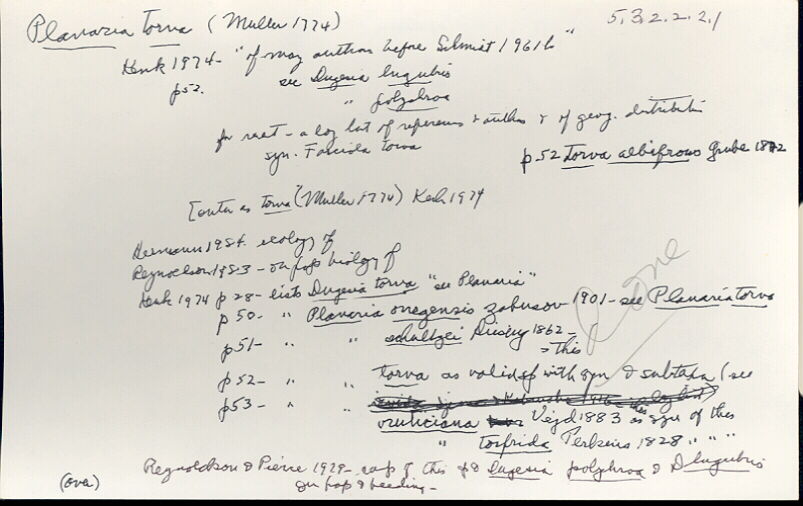 Planaria torva (Muller 1774) 5.3.2.2.2.1
Kenk 1974 - "of many authors before Schmidt 1961b"
p52. see Dugesia lugubris
" polychroa
for rest - a long list of references & authors & of geog. distribution
syn. Fasciola torva
p.52 torva albifrons Grube 1872
[enter as torva "(Muller 1774) Kenk 1974
Hermann 1984. ecology of
Reynoldson 1983 - on pop biology of
Kenk 1974 p 28 - lists Dugesia torva "see Planaria"
p 50 - " Planaria onegensis Zabusov 1901 - see Planaria torva
p51 - " " schultzei Diesing 1862 -
= this
p52 - " " torva as valid sp with syn & subtaxa (see
p53 - " "
vruticiana Vejd 1883 as syn of this
" torfrida Perkins 1928 " " "
Done
Reynoldson & Pierce 1979 - comp of this sp & Dugesia polychroa & D lugubris
on pop & feeding -
(over)